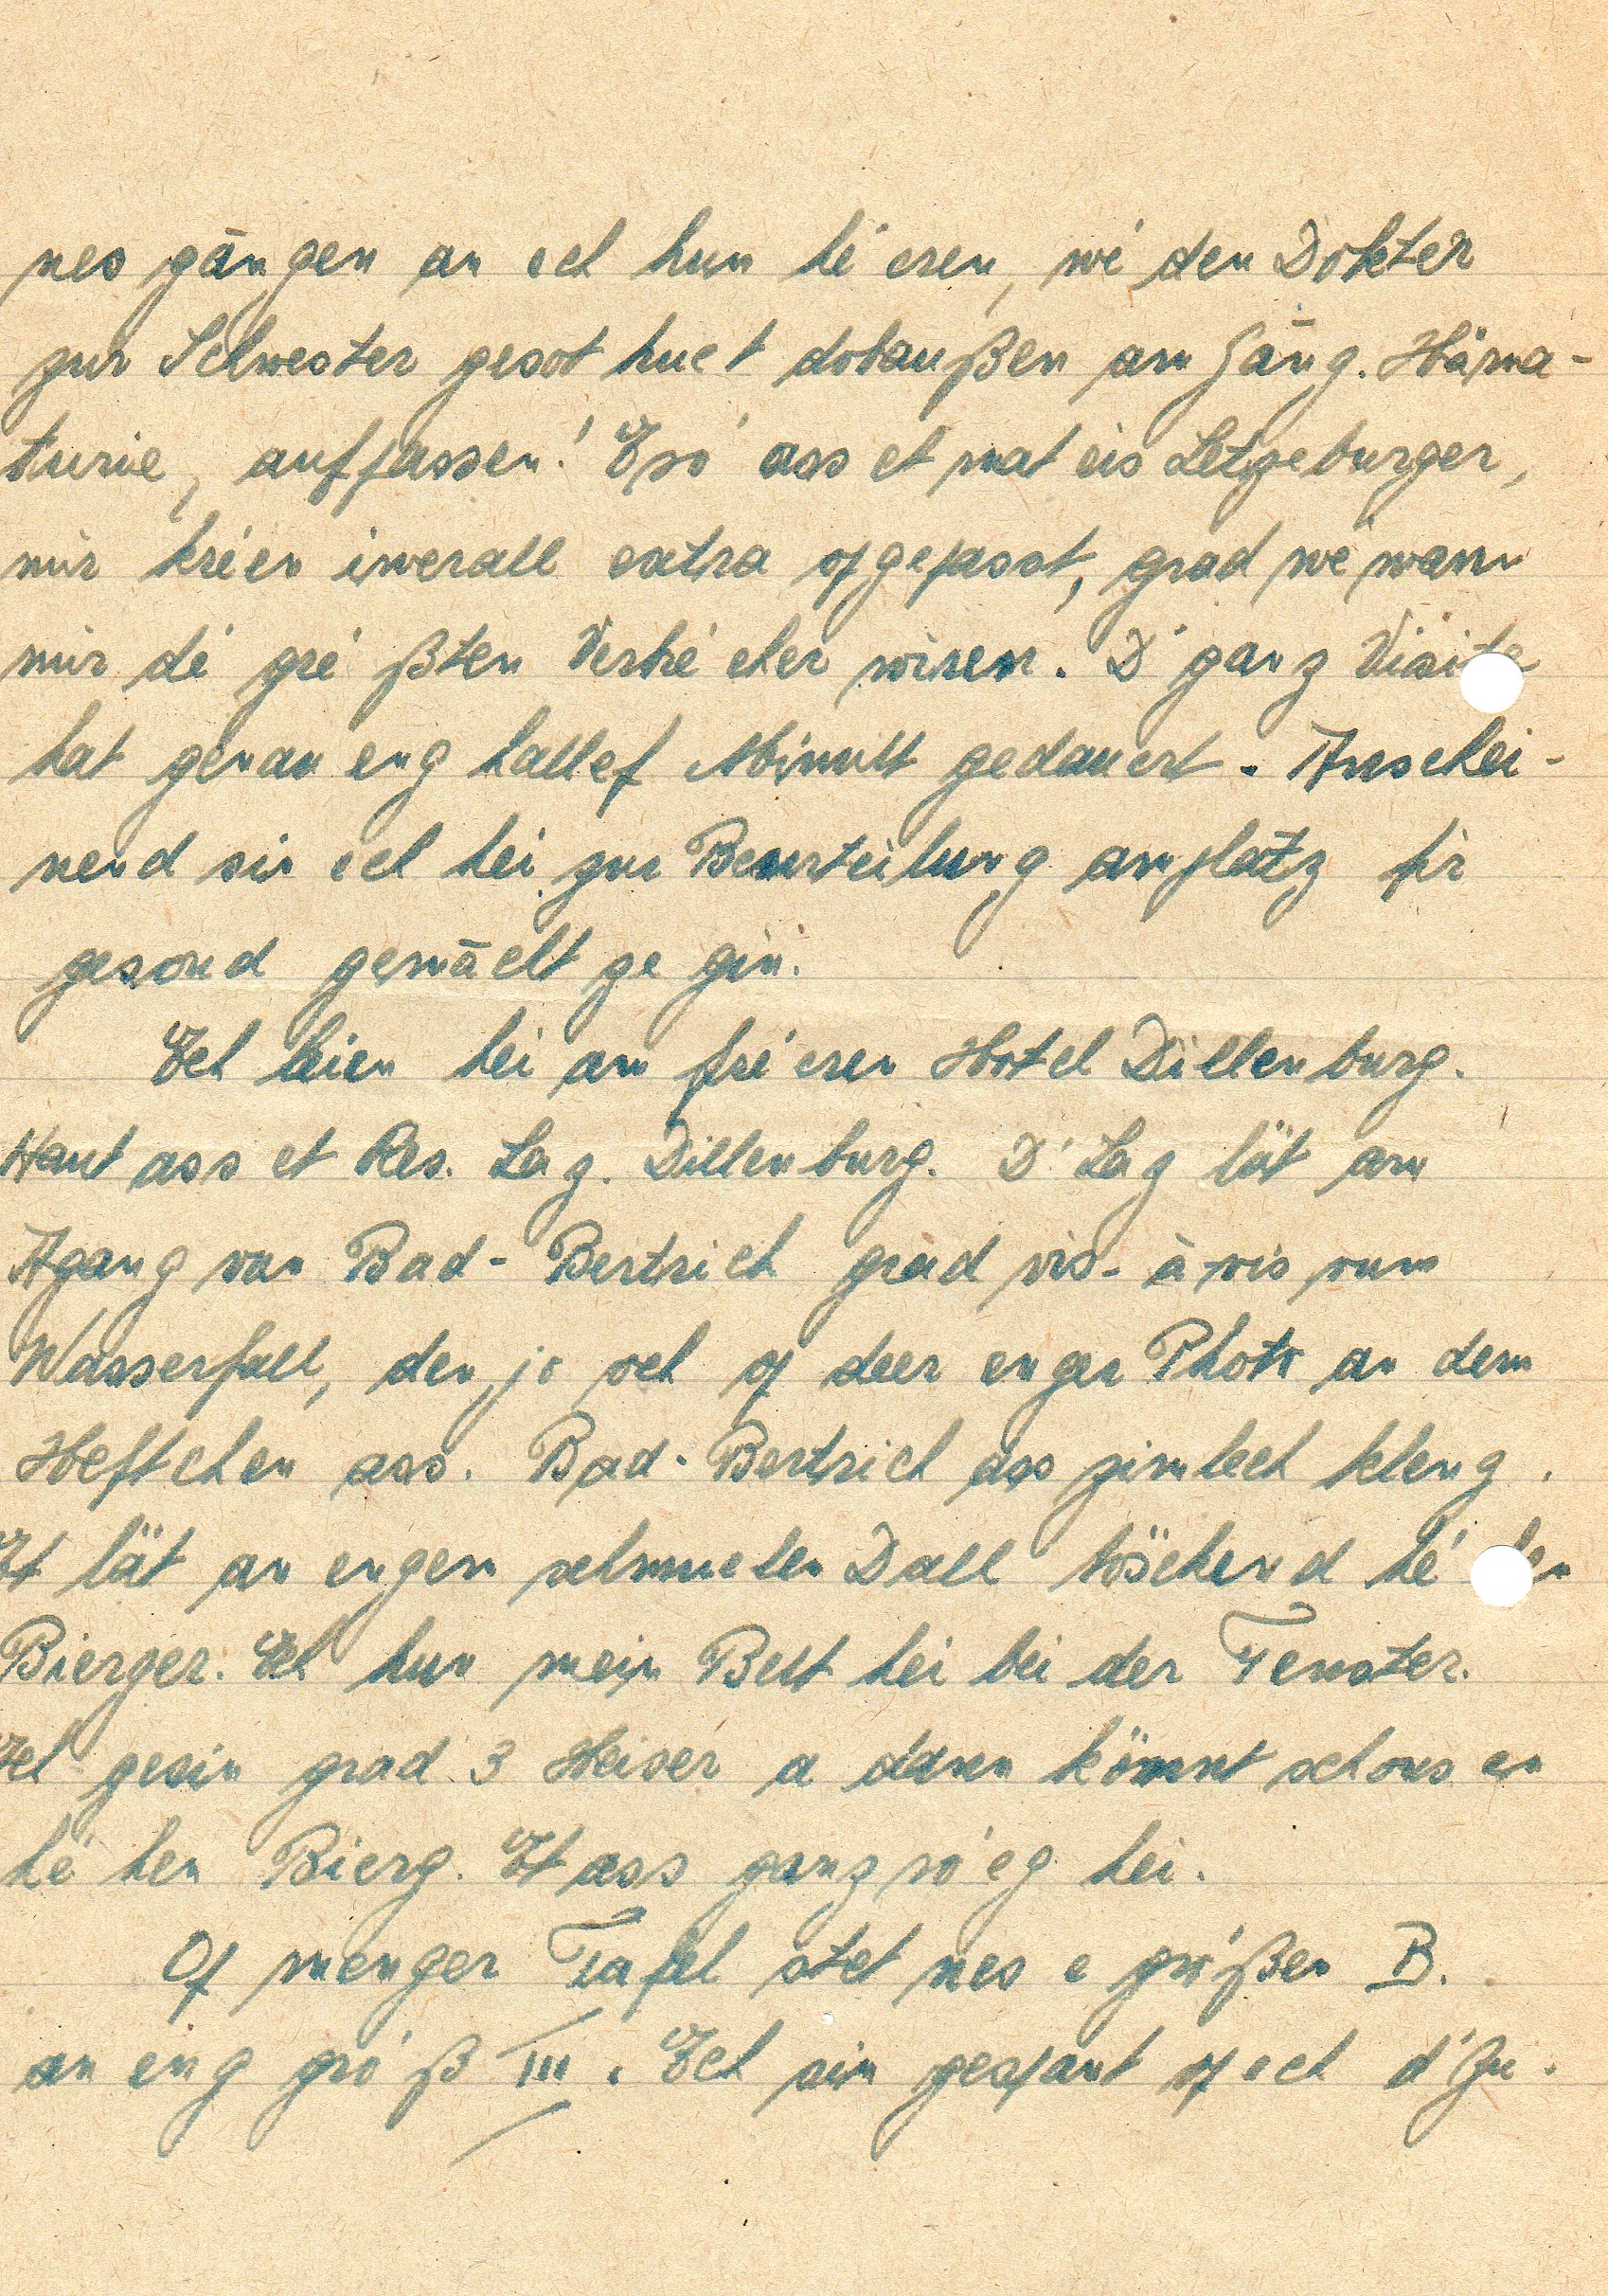 nes gängen an ech hun hé eren, wé den Dokter
zur Schwester gesot huet dobaußen am Gäng. Häma-
turie, aufpassen! Eso' ass et mat eis Letzeburger,
mir kréien iwerall extra ofgepasst, grad wé wann
mir dé gré ßten Verbré cher wiren. D'ganz Visite
hat genau eng hallef Minutt gedauert. Anschei-
nend sin ech hei zur Beurteilung amplatz fir
gesond gemächt ze gin.
Ech leien hei am fré eren Hotel Dillenburg.
Haut ass et Res. Laz. Dillenburg. D'Laz läit am
Agang van Bad-Bertrich grad vis-à-vis vum
Wasserfall, den jo och of deer enger Photo an dem
Heftchen ass. Bad-Bertrich ass zimlech kleng.
Et läit an engem schmuelen Dall töschend hé hen
Bierger. Ech hun mein Bett hei bei der Fenster.
Ech gesin grad 3 Heiser a dann kömmt schons en
hé hen Bierg. Et ass ganz ro'eg hei.
Of menger Tafel stet nes e gro'ßen B.
an eng gro' ß III. Ech sin gespant of ech d'Zu-